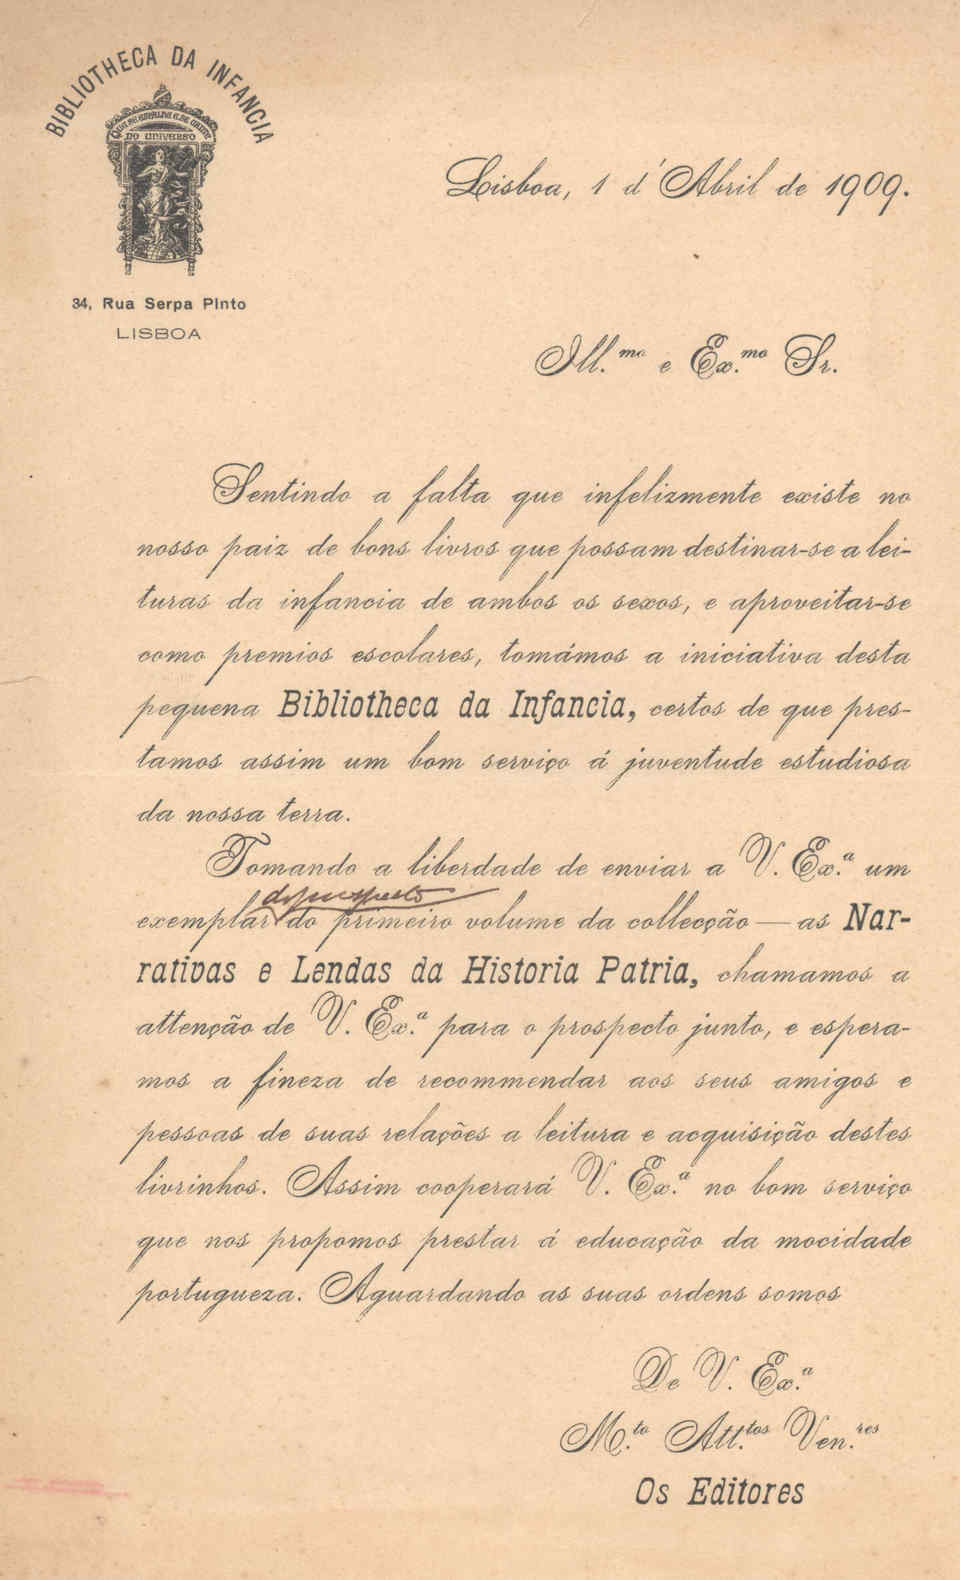 BIBLIOTHECA DA INFANCIA
DO UNIVERSO
34, Rua Serpa Pinto
LISBOA
Lisboa, 1 d'Abril de 1909.
Ill.mo e Ex.mo Sr.
Sentindo a falta que infelizmente existe no
nosso paiz de bons livros que possam destinar-se a lei-
turas da infancia de ambos os sexos, e aproveitar-se
como premios escolares, tomámos a iniciativa desta
pequena Bibliotheca da Infancia, certos de que pres-
tamos assim um bom serviço á juventude estudiosa
da nossa terra.
Tomando a liberdade de enviar a V. Ex.a um
do prospecto
exemplar do primeiro volume da collecção — as Nar-
rativas e Lendas da Historia Patria, chamamos a
attenção de V. Ex.a para o prospecto junto, e espera-
mos a fineza de recommendar aos seus amigos e
pessoas de suas relações a leitura e acquisição destes
livrinhos. Assim cooperará V. Ex.a no bom serviço
que nos propomos prestar á educação da mocidade
portugueza. Aguardando as suas ordens somos
De V. Ex.a
M.to Att.tos Ven.res
Os Editores